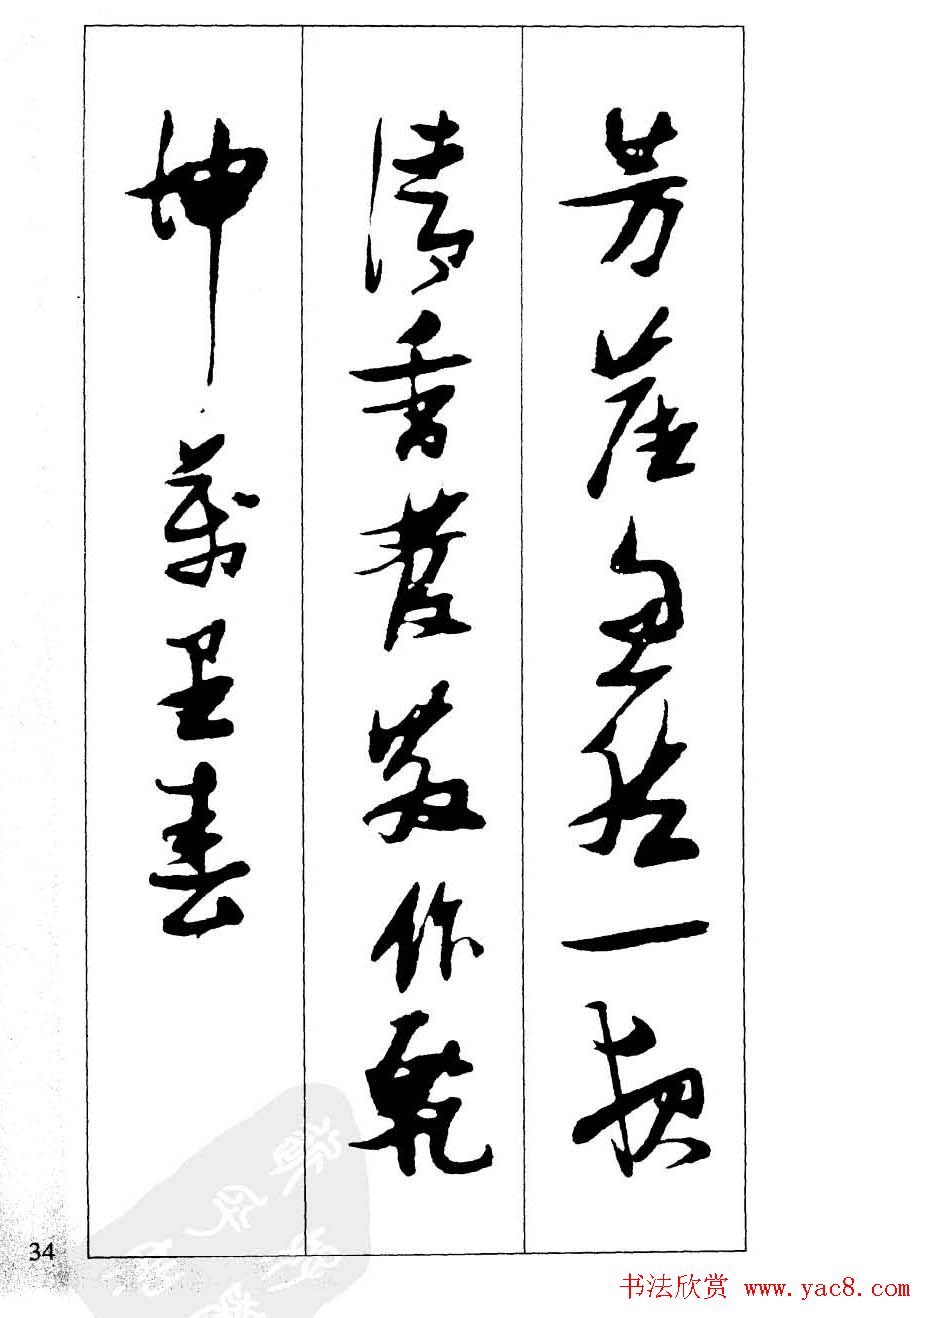 芳塵忽然一夜
清香發散作乾
坤萬里春
34
书法欣赏 www.yac8.com